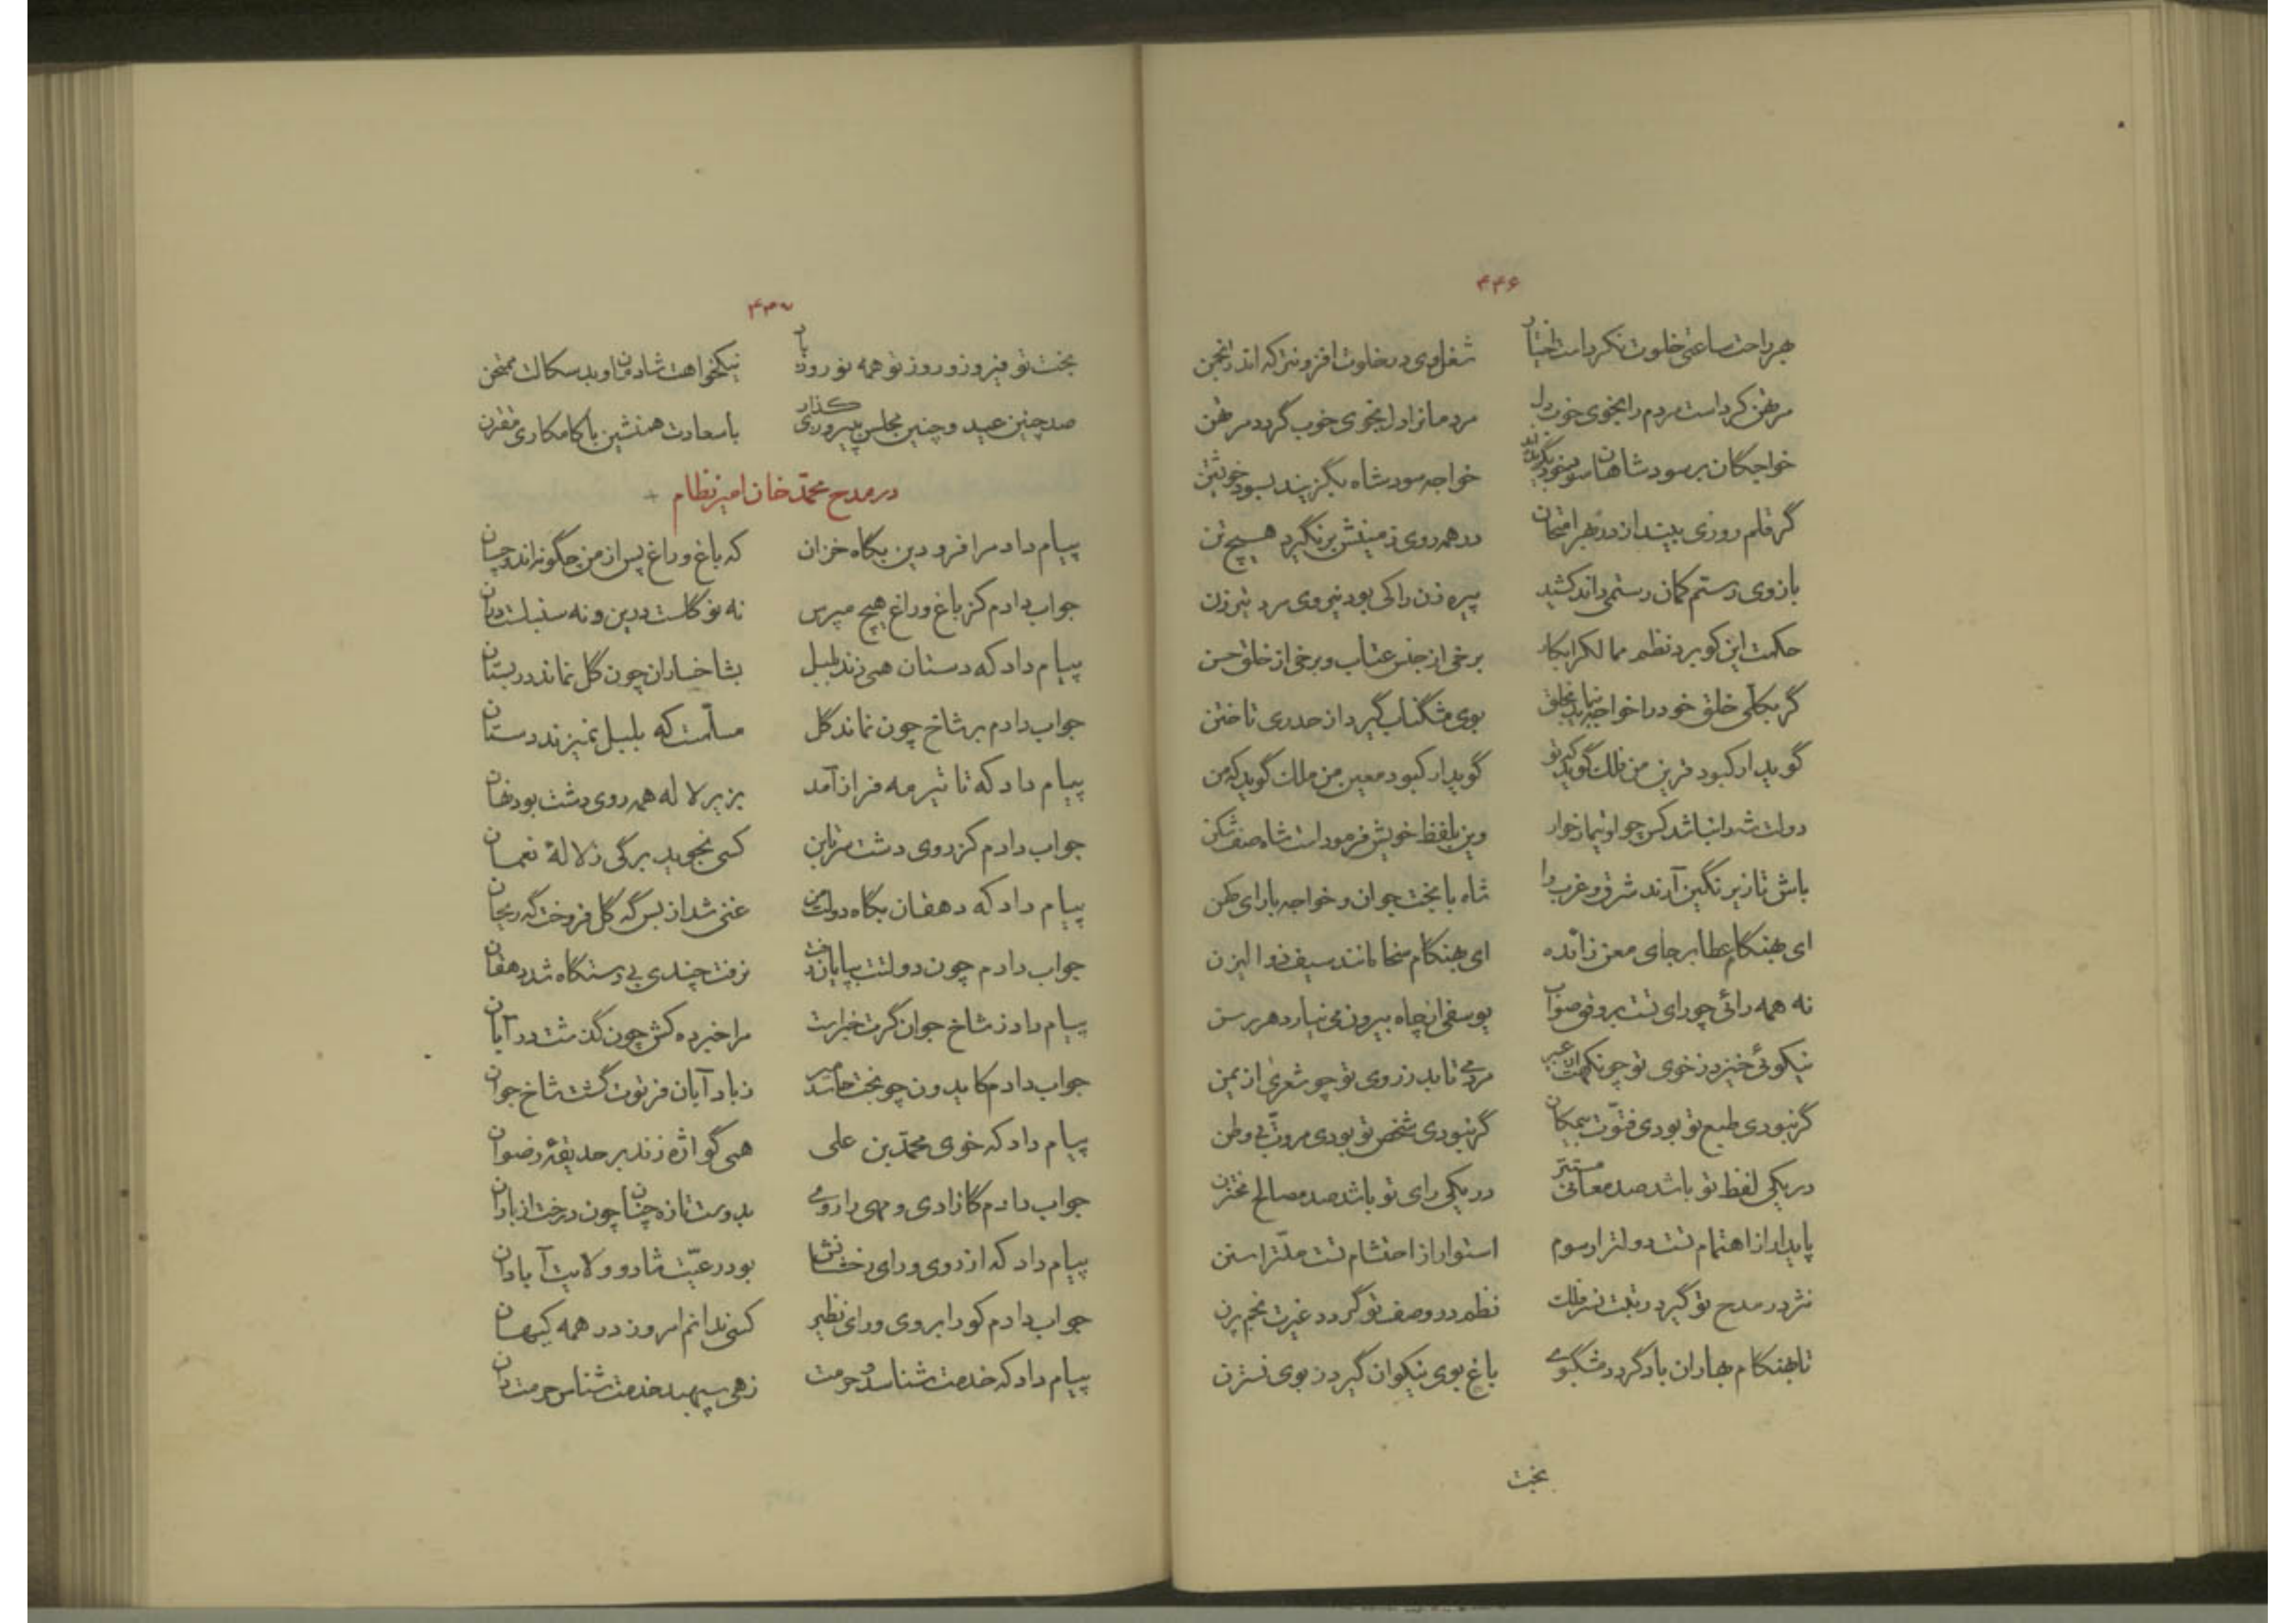 ۴۴۶
بهر راحت ساعتی خلوت نکرد است اختیار شغل اوی در بخلوت افزونتر که اندر انجمن
مرتهن کرد است مردم را بخوی خوب دل مردمانرا دل بخوی خوب گردد مرتهن
خواجگان بر سود شاهان سود خود بگزیده‌اند خواجه سود شاه بگزیند بسود خویشتن
گر قلم روزی بیندازد ز بهر امتحان در همه روی زمینش بر نگیرد هیچ تن
بازوی رستم کمان رستمی داند کشید پیره زن را کی بود نیروی مرد تیر زن
حکمت این کو برد نظم ممالک را بکار برخی از جنس عتاب و برخی از خلق حسن
گر بکلّی خلق خود را خواجه بنماید بخلق بوی مشگناب گیرد از حد ری تا ختن
گوید ار کبود قرین من فلک گوید که تو گوید ار کبود معین من ملک گوید که من
دولت شه را نباشد کس چو او تیمار خوار وین بلفظ خویش فرمود است شاه صف شکن
باش تا زیر نگین آرند شرق و غرب را شاه با بخت جوان و خواجه با رای کهن
ای بهنگام عطا بر جای معن زائده ای بهنگام سخا مانند سیف ذوالیزن
نه همه رائی چو رای تست بر وفق صواب یوسفی از چاه بیرون می نیارد هر رسن
نیکوئی خیزد ز خوی تو چو نکهت از عبیر مردمی تابد ز روی تو چو شعری از یمن
گر نبودی طبع تو بودی فتوّت بیمکان گر نبودی شخص تو بودی مروّت بی وطن
در یکی لفظ تو باشد صد معانی مستتر در یکی رای تو باشد صد مصالح مختزن
پایدار از اهتمام تست دولترا رسوم استوار از احتشام تست ملّترا سنن
نثر در مدح تو گیرد رتبت نسر فلک نظم در وصف تو گردد غیرت نجم پرن
تا بهنگام بهاران باد گردد مشگبوی باغ بوی نیکوان گیرد ز بوی نسترن
بخت
۴۴۷
بخت تو فیروز و روز تو همه نوروز باد نیکخواهت شادمان و بد سکالت ممتحن
صد چنین عید و چنین مجلس به پیروزی گذار با سعادت همنشین با کامکاری مقترن
در مدح محمّد خان امیر نظام
پیام داد مرا فرودین بگاه خزان که باغ و راغ پس از من چگونه‌اند و چسان
جواب دادم کز باغ و راغ هیچ مپرس نه نو گلست در این و نه سنبلست در آن
پیام داد که دستان همی زند بلبل بشاخساران چون گل نماند در بستان
جواب دادم بر شاخ چون نماند گل مسلّمست که بلبل نمیزند دستان
پیام داد که تا تیر مه فراز آمد بزیر لاله همه روی دشت بود نهان
جواب دادم کز روی دشت سرتابن کسی نجوید برگی ز لالهٔ نعمان
پیام داد که دهقان بگاه دولت من غنی شد از بس گه گل فروخت گه ریحان
جواب دادم چون دولتت بپایان رفت نرفت چندی بی دستگاه شد دهقان
پیام داد ز شاخ جوان گرت خبراست مرا خبر ده کش چون گذشت در آبان
جواب دادم کایدون چو بخت حاسد میر ز باد آبان فرتوت گشت شاخ جوان
پیام داد که خوی محمّد بن علی همی گواژه زند بر حدیقهٔ رضوان
جواب دادم کازادی و بهی را روی بدوست تازه چنان چون درخت از باران
پیام داد که از روی و رای رخشانش بود رعیّت شاد و ولایت آبادان
جواب دادم کو را بروی و رای نظیر کسی ندانم امروز در همه کیهان
پیام داد که خدمت شناسد و حرمت زهی سپهبد خدمت شناس حرمت دان